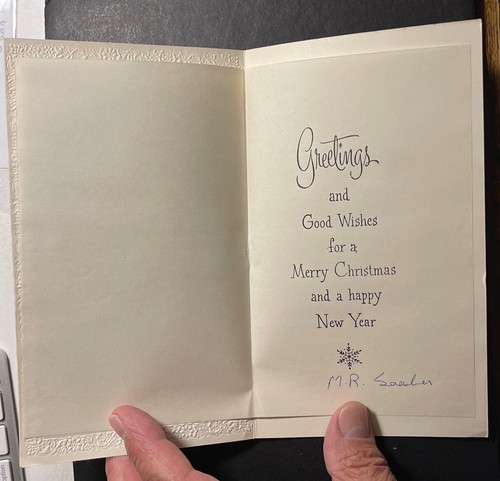 Greetings
and
Good Wishes
for a
Merry Christmas
and a happy
New Year
M.R.